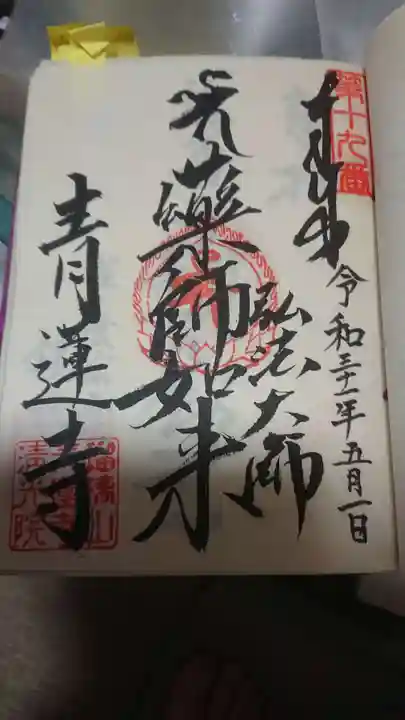 第十九番
奉拝
令和三十一年五月一日
弘法大師
薬師如来
青蓮寺
清光院